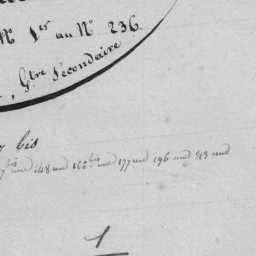 Nº 1er au Nº 236.
, Gtre Sécondaire
bis
148 und 166 bis und 177 und 196 und 213 und
1